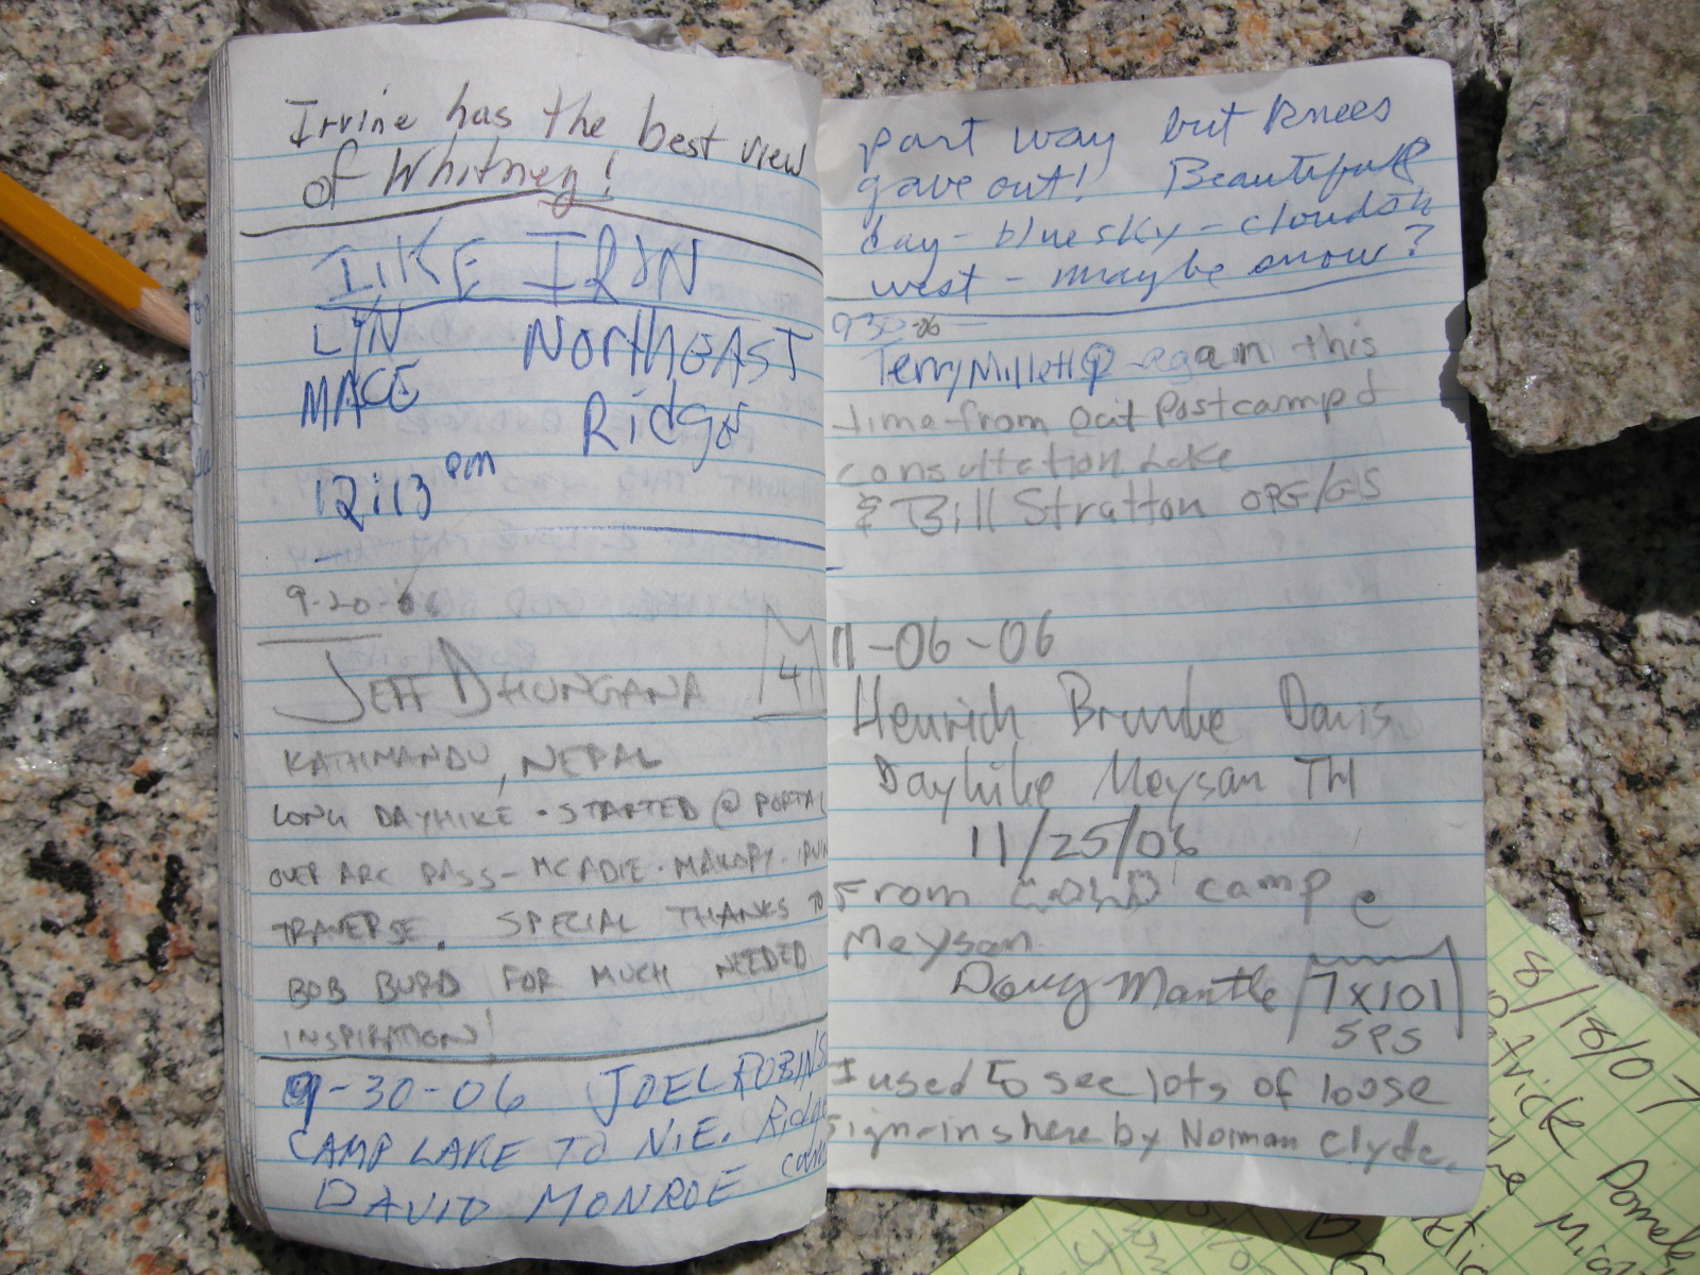 Irvine has the best view
of Whitney!
IKE IRUN
LYN
MACE
NORTHEAST
Ridge
12:13 pm
9-20-06
JEFF DHUNGANA
M
41
KATHMANDU, NEPAL
LONG DAYHIKE - STARTED @ PORTAL
OVER ARC PASS - MCADIE - MALLORY - IRVIN
TRAVERSE. SPECIAL THANKS TO
BOB BURD FOR MUCH NEEDED
INSPIRATION!
9-30-06 JOEL ROBINS
CAMP LAKE TO N.E. Ridge
DAVID MONROE came
part way but knees
gave out! Beautiful
day - blue sky - clouds in
west - maybe snow?
930-06
Terry Millett again this
time from OutPost camp &
Consultation Lake
& Bill Stratton OPG/GS
11-06-06
Heinrich Brumbe Davis
Dayhike Meysan TH
11/25/06
From COLD camp @
Meysan
Doug Mantle 7x101
SPS
I used to see lots of loose
sign-ins here by Norman Clyde.
8/18/07
Patrick Domek